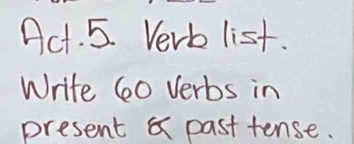 Act.5. Verb list.
Write 60 Verbs in
present & past tense.